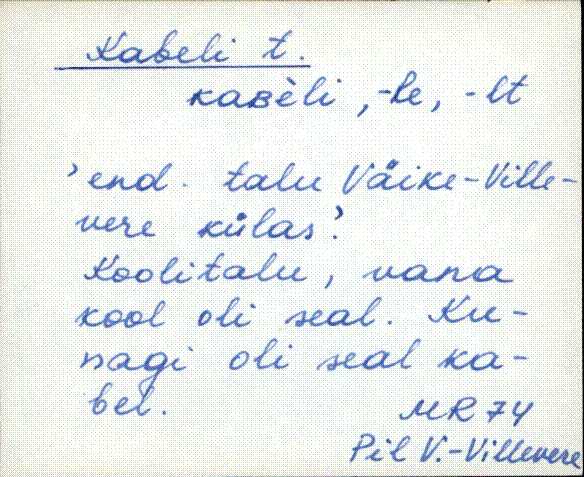 Kabeli t.
kaʙèli, -le, -lt
'end. talu Väike-Ville-
vere külas'.
Koolitalu, vana
kool oli seal. Ku-
nagi oli seal ka-
bel.
MR 74
Pil V.-Villevere